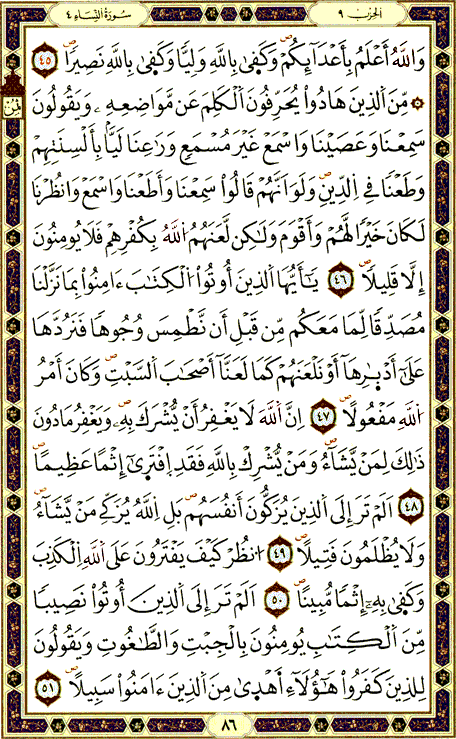 الحزب ٩
سورة النساء ٤
وَاللَّهُ أَعْلَمُ بِأَعْدَآئِكُمْۖ وَكَفَىٰ بِاللَّهِ وَلِيّٗا وَكَفَىٰ بِاللَّهِ نَصِيرٗاۖ ٤٥
۞ مِّنَ اَلذِينَ هَادُواْ يُحَرِّفُونَ اَلْكَلِمَ عَن مَّوَاضِعِهِۦ وَيَقُولُونَ
سَمِعْنَا وَعَصَيْنَا وَاسْمَعْ غَيْرَ مُسْمَعٖ وَرَٰعِنَا لَيّاَۢ بِأَلْسِنَتِهِمْ
وَطَعْناٗ فِے اِلدِّينِۖ وَلَوَ اَنَّهُمْ قَالُواْ سَمِعْنَا وَأَطَعْنَا وَاسْمَعْ وَانظُرْنَا
لَكَانَ خَيْراٗ لَّهُمْ وَأَقْوَمَ وَلَٰكِن لَّعَنَهُمُ اُللَّهُ بِكُفْرِهِمْ فَلَا يُومِنُونَ
إِلَّا قَلِيلاٗۖ ٤٦ يَٰٓأَيُّهَا اَلذِينَ أُوتُواْ اُلْكِتَٰبَ ءَامِنُواْ بِمَا نَزَّلْنَا
مُصَدِّقاٗ لِّمَا مَعَكُم مِّن قَبْلِ أَن نَّطْمِسَ وُجُوهاٗ فَنَرُدَّهَا
عَلَىٰٓ أَدْبٰ۪رِهَآ أَوْ نَلْعَنَهُمْ كَمَا لَعَنَّآ أَصْحَٰبَ اَلسَّبْتِۖ وَكَانَ أَمْرُ
اُللَّهِ مَفْعُولاًۖ ٤٧ اِنَّ اَللَّهَ لَا يَغْفِرُ أَنْ يُّشْرَكَ بِهِۦۖ وَيَغْفِرُ مَا دُونَ
ذَٰلِكَ لِمَنْ يَّشَآءُۖ وَمَنْ يُّشْرِكْ بِاللَّهِ فَقَدِ اِفْتَر۪ىٰٓ إِثْماً عَظِيماًۖ
٤٨ اَلَمْ تَرَ إِلَى اَلذِينَ يُزَكُّونَ أَنفُسَهُمۖ بَلِ اِللَّهُ يُزَكِّے مَنْ يَّشَآءُۖ
وَلَا يُظْلَمُونَ فَتِيلاًۖ ٤٩ اُنظُرْ كَيْفَ يَفْتَرُونَ عَلَى اَللَّهِ اِلْكَذِبَ
وَكَفَىٰ بِهِۦٓ إِثْماٗ مُّبِيناًۖ ٥٠ اَلَمْ تَرَ إِلَى اَلذِينَ أُوتُواْ نَصِيباٗ
مِّنَ اَلْكِتَٰبِ يُومِنُونَ بِالْجِبْتِ وَالطَّٰغُوتِ وَيَقُولُونَ
لِلذِينَ كَفَرُواْ هَٰٓؤُلَآءِ اَهْد۪ىٰ مِنَ اَلذِينَ ءَامَنُواْ سَبِيلاًۖ ٥١
٨٦